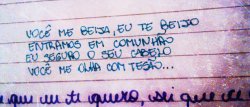 VOCÊ ME BEIJA, EU TE BEIJO
ENTRAMOS EM COMUNHÃO
EU SEGURO O SEU CABELO
VOCÊ ME OLHA COM TESÃO...
que eu ti quero, sei que